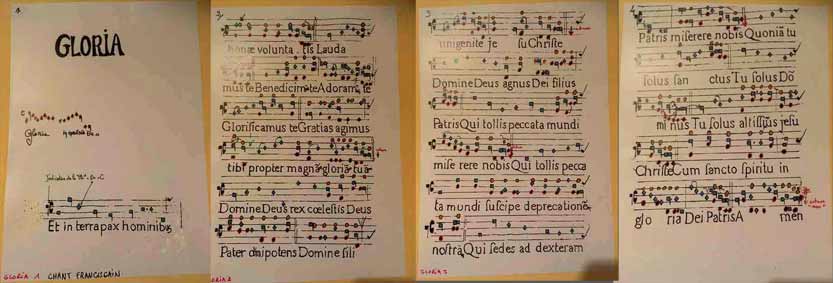 1
GLORIA
C
Gloria
Et in terra pax hominibꝰ
GLORIA 1 CHANT FRANCISCAIN
2
bonæ volunta . tis Lauda
mus te Benedicimꝰte Adoramꝰ te
Glorificamus te Gratias agimus
tibi propter magnā gloriā tuā
Domine Deus rex cœlestis Deus
Pater oīnipotens Domine fili
3
unigenite je su Christe
Domine Deus agnus Dei filius
Patris Qui tollis peccata mundi
mise rere nobis Qui tollis pecca
ta mundi suscipe deprecationē
nostrā Qui sedes ad dexteram
4
Patris miserere nobis Quoniā tu
solus san ctus Tu solus Do
mi nus Tu solus altissimꝰ jesu
Christe Cum sancto spiritu in
glo ria Dei Patris A men